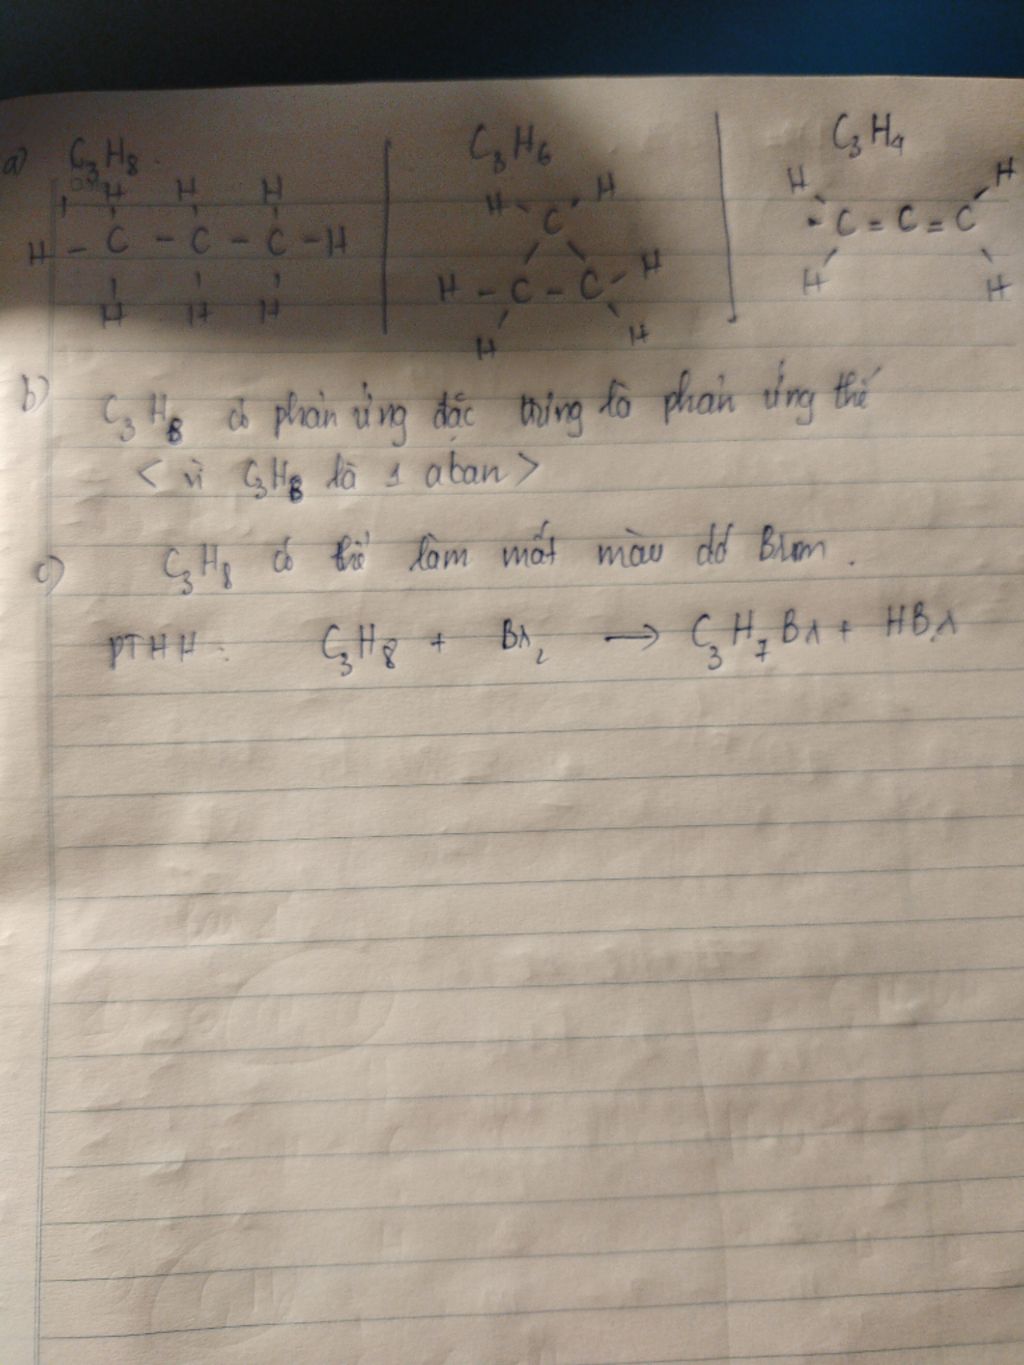 a) C₃H₈ | C₃H₆ | C₃H₄
H H H
H - C - C - C - H
H H H
H H
C
H - C - C - H
H H
H H
C = C = C
H H
b) C₃H₈ có phản ứng đặc trưng là phản ứng thế
< vì C₃H₈ là 1 akan >
c) C₃H₈ có thể làm mất màu dd Brom.
PTHH: C₃H₈ + Br₂ → C₃H₇Br + HBr